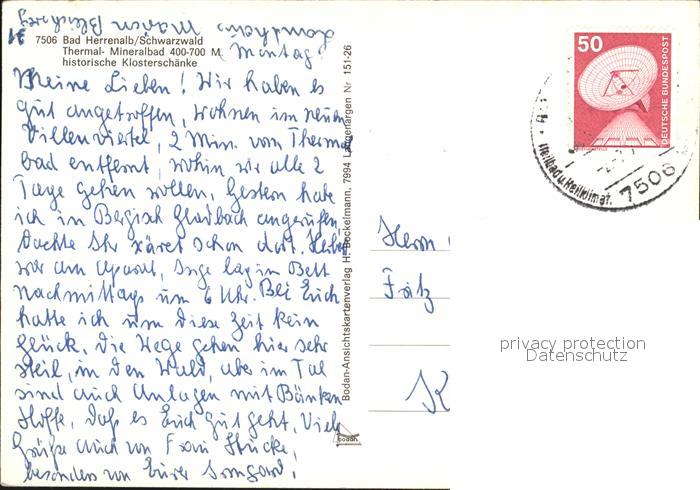 Landhaus Marion Bleichweg
31
7506 Bad Herrenalb/Schwarzwald
Thermal- Mineralbad 400-700 M.
historische Klosterschänke
Montag
Meine Lieben! Wir haben es
gut angetroffen, wohnen im neuen
Villenviertel, 2 Min. vom Therma
bad entfernt, wohin wir alle 2
Tage gehen wollen, Gestern habe
ich in Bergisch Gladbach angerufen
Dachte Ihr wäret schon dort.
war am Apparat, Inge lag im Bett
Nachmittags um 6 Uhr. Bei Euch
hatte ich um diese Zeit kein
Glück, die Wege gehen hier sehr
steil, in den Wald, aber im Tal
sind auch Anlagen mit Bänken
Hoffe, daß es Euch gut geht, Viele
Grüße auch von Frau Stücke,
besonders von Eurer Irmgard,
Bodan-Ansichtskartenverlag H. Bockelmann, 7994 Langenargen Nr. 151-26
bodan
50
DEUTSCHE BUNDESPOST
Heilbad u. Heilklimat.
7506
Herrn
Fritz
K
privacy protection
Datenschutz